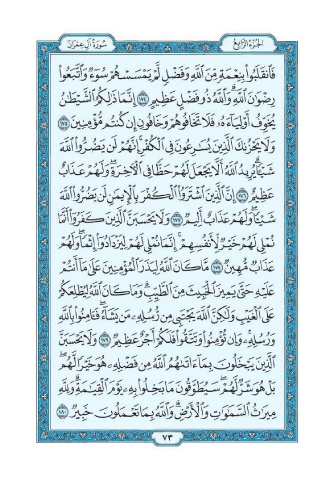 الجزء الرابع
سورة آل عمران
فَٱنقَلَبُوا۟ بِنِعْمَةٍ مِّنَ ٱللَّهِ وَفَضْلٍ لَّمْ يَمْسَسْهُمْ سُوٓءٌ وَٱتَّبَعُوا۟
رِضْوَٰنَ ٱللَّهِ ۗ وَٱللَّهُ ذُو فَضْلٍ عَظِيمٍ ١٧٤ إِنَّمَا ذَٰلِكُمُ ٱلشَّيْطَٰنُ
يُخَوِّفُ أَوْلِيَآءَهُۥ فَلَا تَخَافُوهُمْ وَخَافُونِ إِن كُنتُم مُّؤْمِنِينَ ١٧٥
وَلَا يَحْزُنكَ ٱلَّذِينَ يُسَٰرِعُونَ فِى ٱلْكُفْرِ ۚ إِنَّهُمْ لَن يَضُرُّوا۟ ٱللَّهَ
شَيْـًٔا ۗ يُرِيدُ ٱللَّهُ أَلَّا يَجْعَلَ لَهُمْ حَظًّا فِى ٱلْـَٔاخِرَةِ ۖ وَلَهُمْ عَذَابٌ
عَظِيمٌ ١٧٦ إِنَّ ٱلَّذِينَ ٱشْتَرَوُا۟ ٱلْكُفْرَ بِٱلْإِيمَٰنِ لَن يَضُرُّوا۟ ٱللَّهَ
شَيْـًٔا وَلَهُمْ عَذَابٌ أَلِيمٌ ١٧٧ وَلَا يَحْسَبَنَّ ٱلَّذِينَ كَفَرُوٓا۟ أَنَّمَا
نُمْلِى لَهُمْ خَيْرٌ لِّأَنفُسِهِمْ ۚ إِنَّمَا نُمْلِى لَهُمْ لِيَزْدَادُوٓا۟ إِثْمًا ۚ وَلَهُمْ
عَذَابٌ مُّهِينٌ ١٧٨ مَّا كَانَ ٱللَّهُ لِيَذَرَ ٱلْمُؤْمِنِينَ عَلَىٰ مَآ أَنتُمْ
عَلَيْهِ حَتَّىٰ يَمِيزَ ٱلْخَبِيثَ مِنَ ٱلطَّيِّبِ ۗ وَمَا كَانَ ٱللَّهُ لِيُطْلِعَكُمْ
عَلَى ٱلْغَيْبِ وَلَٰكِنَّ ٱللَّهَ يَجْتَبِى مِن رُّسُلِهِۦ مَن يَشَآءُ ۖ فَـَٔامِنُوا۟ بِٱللَّهِ
وَرُسُلِهِۦ ۚ وَإِن تُؤْمِنُوا۟ وَتَتَّقُوا۟ فَلَكُمْ أَجْرٌ عَظِيمٌ ١٧٩ وَلَا يَحْسَبَنَّ
ٱلَّذِينَ يَبْخَلُونَ بِمَآ ءَاتَىٰهُمُ ٱللَّهُ مِن فَضْلِهِۦ هُوَ خَيْرًا لَّهُم ۖ
بَلْ هُوَ شَرٌّ لَّهُمْ ۖ سَيُطَوَّقُونَ مَا بَخِلُوا۟ بِهِۦ يَوْمَ ٱلْقِيَٰمَةِ ۗ وَلِلَّهِ
مِيرَٰثُ ٱلسَّمَٰوَٰتِ وَٱلْأَرْضِ ۗ وَٱللَّهُ بِمَا تَعْمَلُونَ خَبِيرٌ ١٨٠
٧٣